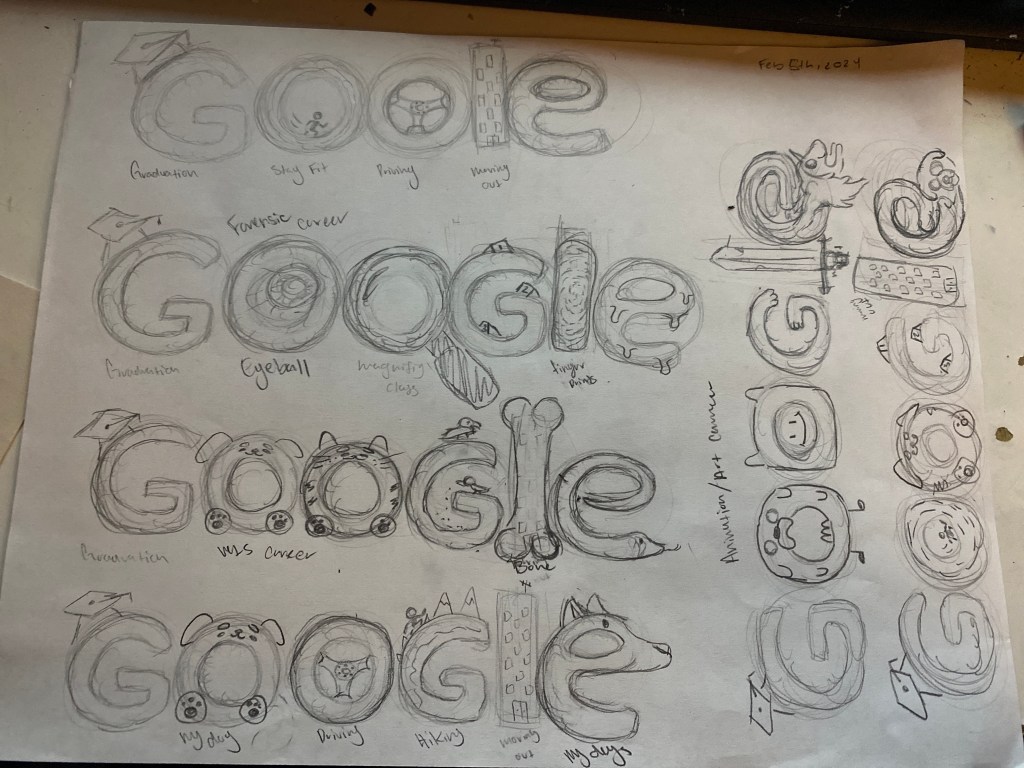 Feb 8th, 2024
Goole
Graduation
Stay Fit
Driving
moving out
Forensic career
Google
Graduation
Eyeball
finger prints
Google
Graduation
career
Bone
Google
my dog
Driving
Hiking
moving out
my dogs
Google
Animation/Art career
Google